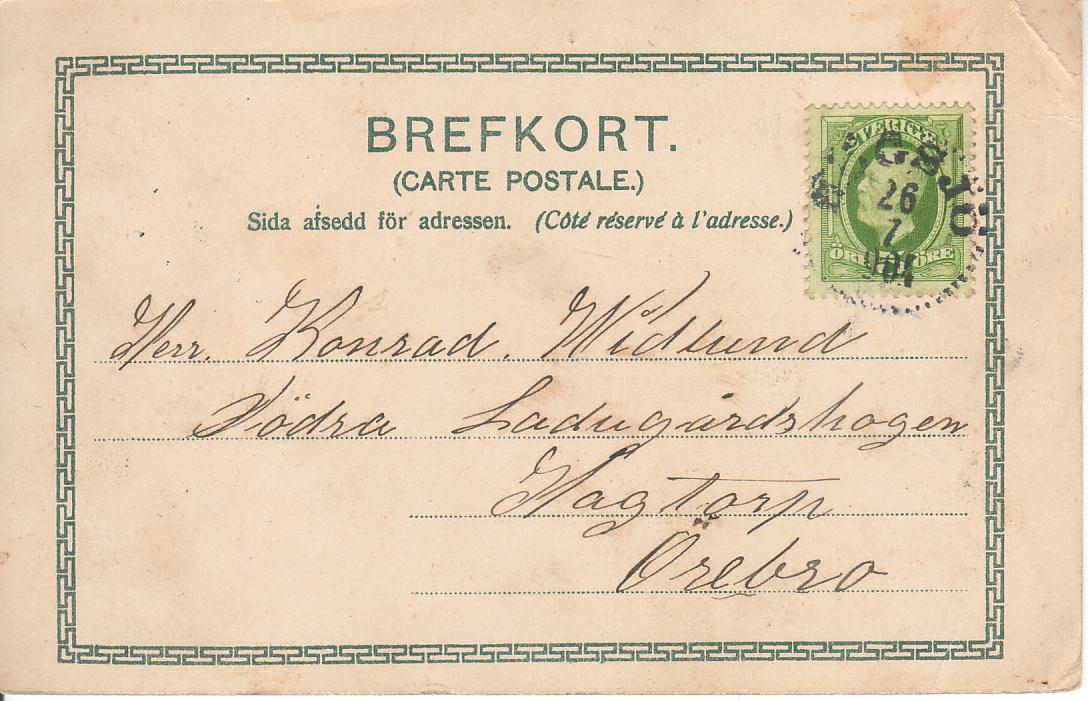 BREFKORT.
(CARTE POSTALE.)
Sida afsedd för adressen. (Côté réservé à l'adresse.)
SVERIGE
26
7
904
ÖRE ÖRE
Herr. Konrad. Widlund
Södra Ladugårdshogen
Hagtorp
Örebro